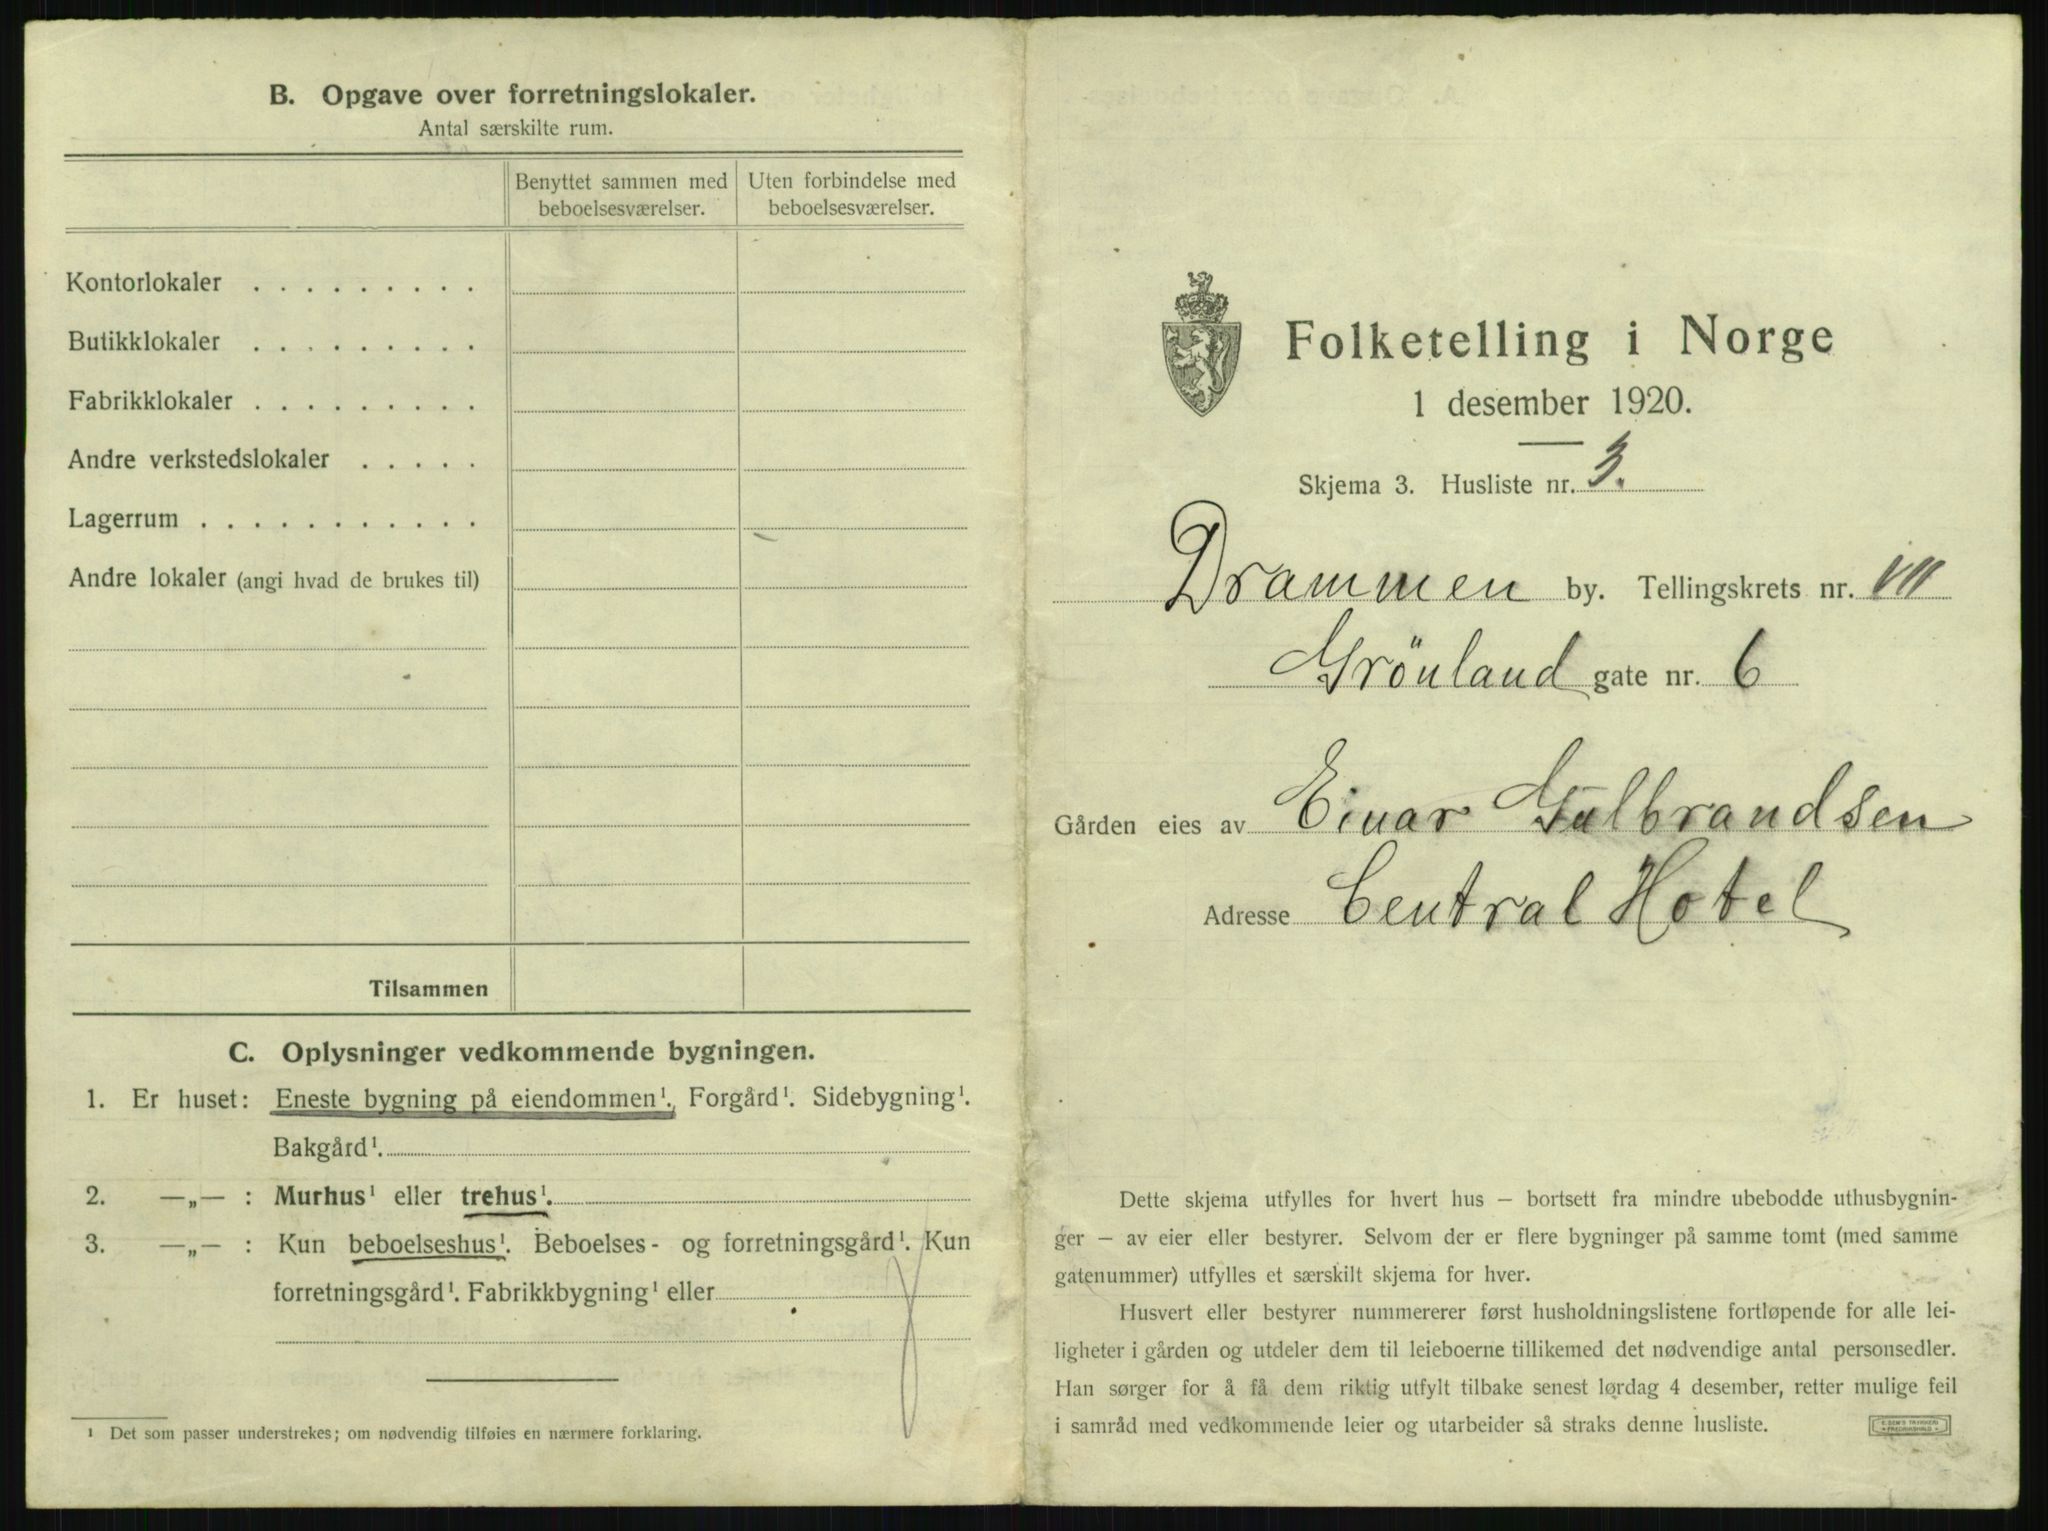 B. Opgave over forretningslokaler.
Antal særskilte rum.
Benyttet sammen med beboelsesværelser.
Uten forbindelse med beboelsesværelser.
Kontorlokaler . . . . . . . . .
Butikklokaler . . . . . . . . .
Fabrikklokaler . . . . . . . . .
Andre verkstedslokaler . . . . .
Lagerrum . . . . . . . . . . .
Andre lokaler (angi hvad de brukes til)
Tilsammen
C. Oplysninger vedkommende bygningen.
1. Er huset: Eneste bygning på eiendommen¹. Forgård¹. Sidebygning¹.
Bakgård¹.
2. —„— : Murhus¹ eller trehus¹.
3. —„— : Kun beboelseshus¹. Beboelses- og forretningsgård¹. Kun
forretningsgård¹. Fabrikkbygning¹ eller
¹ Det som passer understrekes; om nødvendig tilføies en nærmere forklaring.
Folketelling i Norge
1 desember 1920.
Skjema 3. Husliste nr. 3.
Drammen by. Tellingskrets nr. VII
Grönland gate nr. 6
Gården eies av Einar Gulbrandsen
Adresse Central Hotel
Dette skjema utfylles for hvert hus — bortsett fra mindre ubebodde uthusbygnin-
ger — av eier eller bestyrer. Selvom der er flere bygninger på samme tomt (med samme
gatenummer) utfylles et særskilt skjema for hver.
Husvert eller bestyrer nummererer først husholdningslistene fortløpende for alle lei-
ligheter i gården og utdeler dem til leieboerne tillikemed det nødvendige antal personsedler.
Han sørger for å få dem riktig utfylt tilbake senest lørdag 4 desember, retter mulige feil
i samråd med vedkommende leier og utarbeider så straks denne husliste.